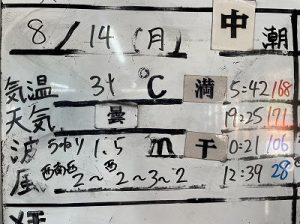 8/14(月) 中潮
気温 31℃ 満 5:42 168
天気 曇 19:25 171
波 うねり 1.5 m 干 0:21 106
風 西南西 2~西2~3~2 12:39 28